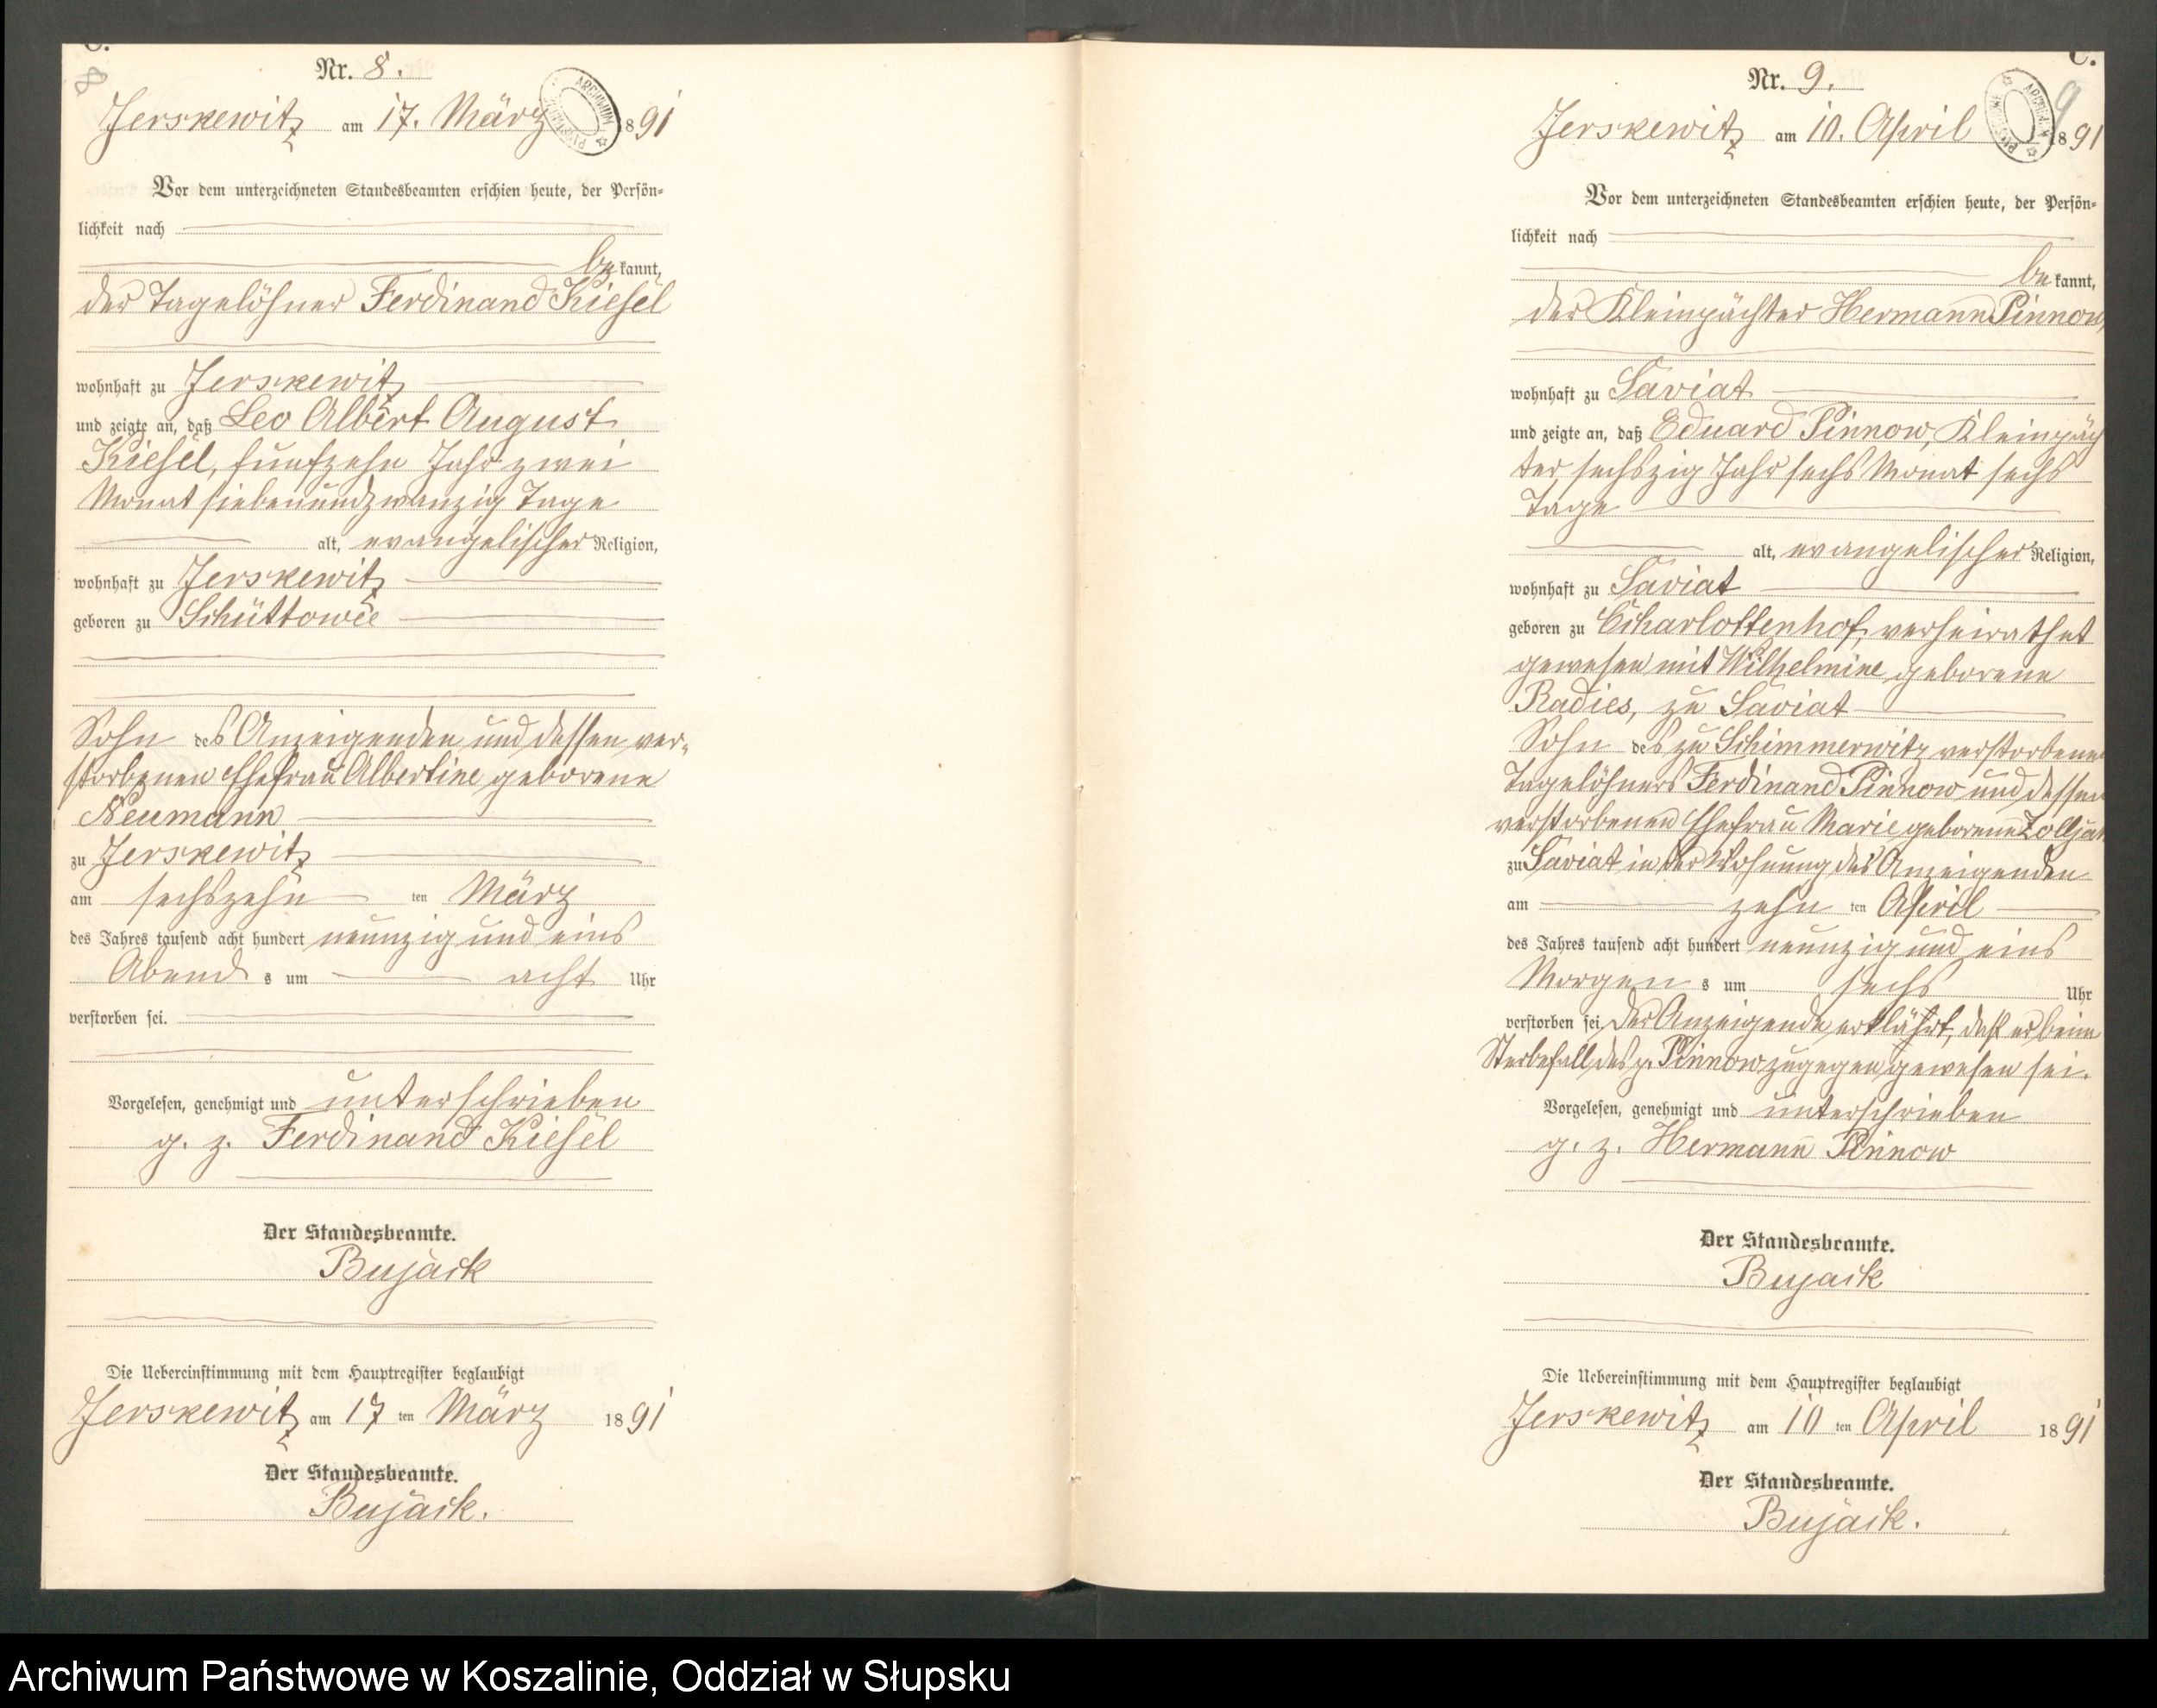 C.
8
Nr. 8.
Jerskewitz am 17. März 1891
Vor dem unterzeichneten Standesbeamten erschien heute, der Persön-
lichkeit nach
bekannt,
der Tagelöhner Ferdinand Kiesel
wohnhaft zu Jerskewitz
und zeigte an, daß Leo Albert August
Kiesel, fünfzehn Jahr zwei
Monat siebenundzwanzig Tage
alt, evangelischer Religion,
wohnhaft zu Jerskewitz
geboren zu Schüttowee
Sohn des Anzeigenden und dessen ver-
storbenen Ehefrau Albertine geborene
Neumann
zu Jerskewitz
am sechszehn ten März
des Jahres tausend acht hundert neunzig und eins
Abends um acht Uhr
verstorben sei.
Vorgelesen, genehmigt und unterschrieben
g. z. Ferdinand Kiesel
Der Standesbeamte.
Bujack
Die Uebereinstimmung mit dem Hauptregister beglaubigt
Jerskewitz am 17 ten März 1891
Der Standesbeamte.
Bujack.
C.
9
Nr. 9.
Jerskewitz am 10. April 1891
Vor dem unterzeichneten Standesbeamten erschien heute, der Persön-
lichkeit nach
bekannt,
der Kleinpächter Hermann Pinnow,
wohnhaft zu Saviat
und zeigte an, daß Eduard Pinnow, Kleinpäch
ter, sechszig Jahr sechs Monat sechs
Tage
alt, evangelischer Religion,
wohnhaft zu Saviat
geboren zu Charlottenhof, verheirathet
gewesen mit Wilhelmine geborene
Radies, zu Saviat
Sohn des zu Schimmerwitz verstorbenen
Tagelöhners Ferdinand Pinnow und dessen
verstorbenen Ehefrau Marie geborene
zu Saviat in der Wohnung des Anzeigenden
am zehn ten April
des Jahres tausend acht hundert neunzig und eins
Morgens um sechs Uhr
verstorben sei. Der Anzeigende erklährt, daß er beim
Sterbefall des p. Pinnow zugegen gewesen sei.
Vorgelesen, genehmigt und unterschrieben
g. z. Hermann Pinnow
Der Standesbeamte.
Bujack
Die Uebereinstimmung mit dem Hauptregister beglaubigt
Jerskewitz am 10 ten April 1891
Der Standesbeamte.
Bujack.
Archiwum Państwowe w Koszalinie, Oddział w Słupsku